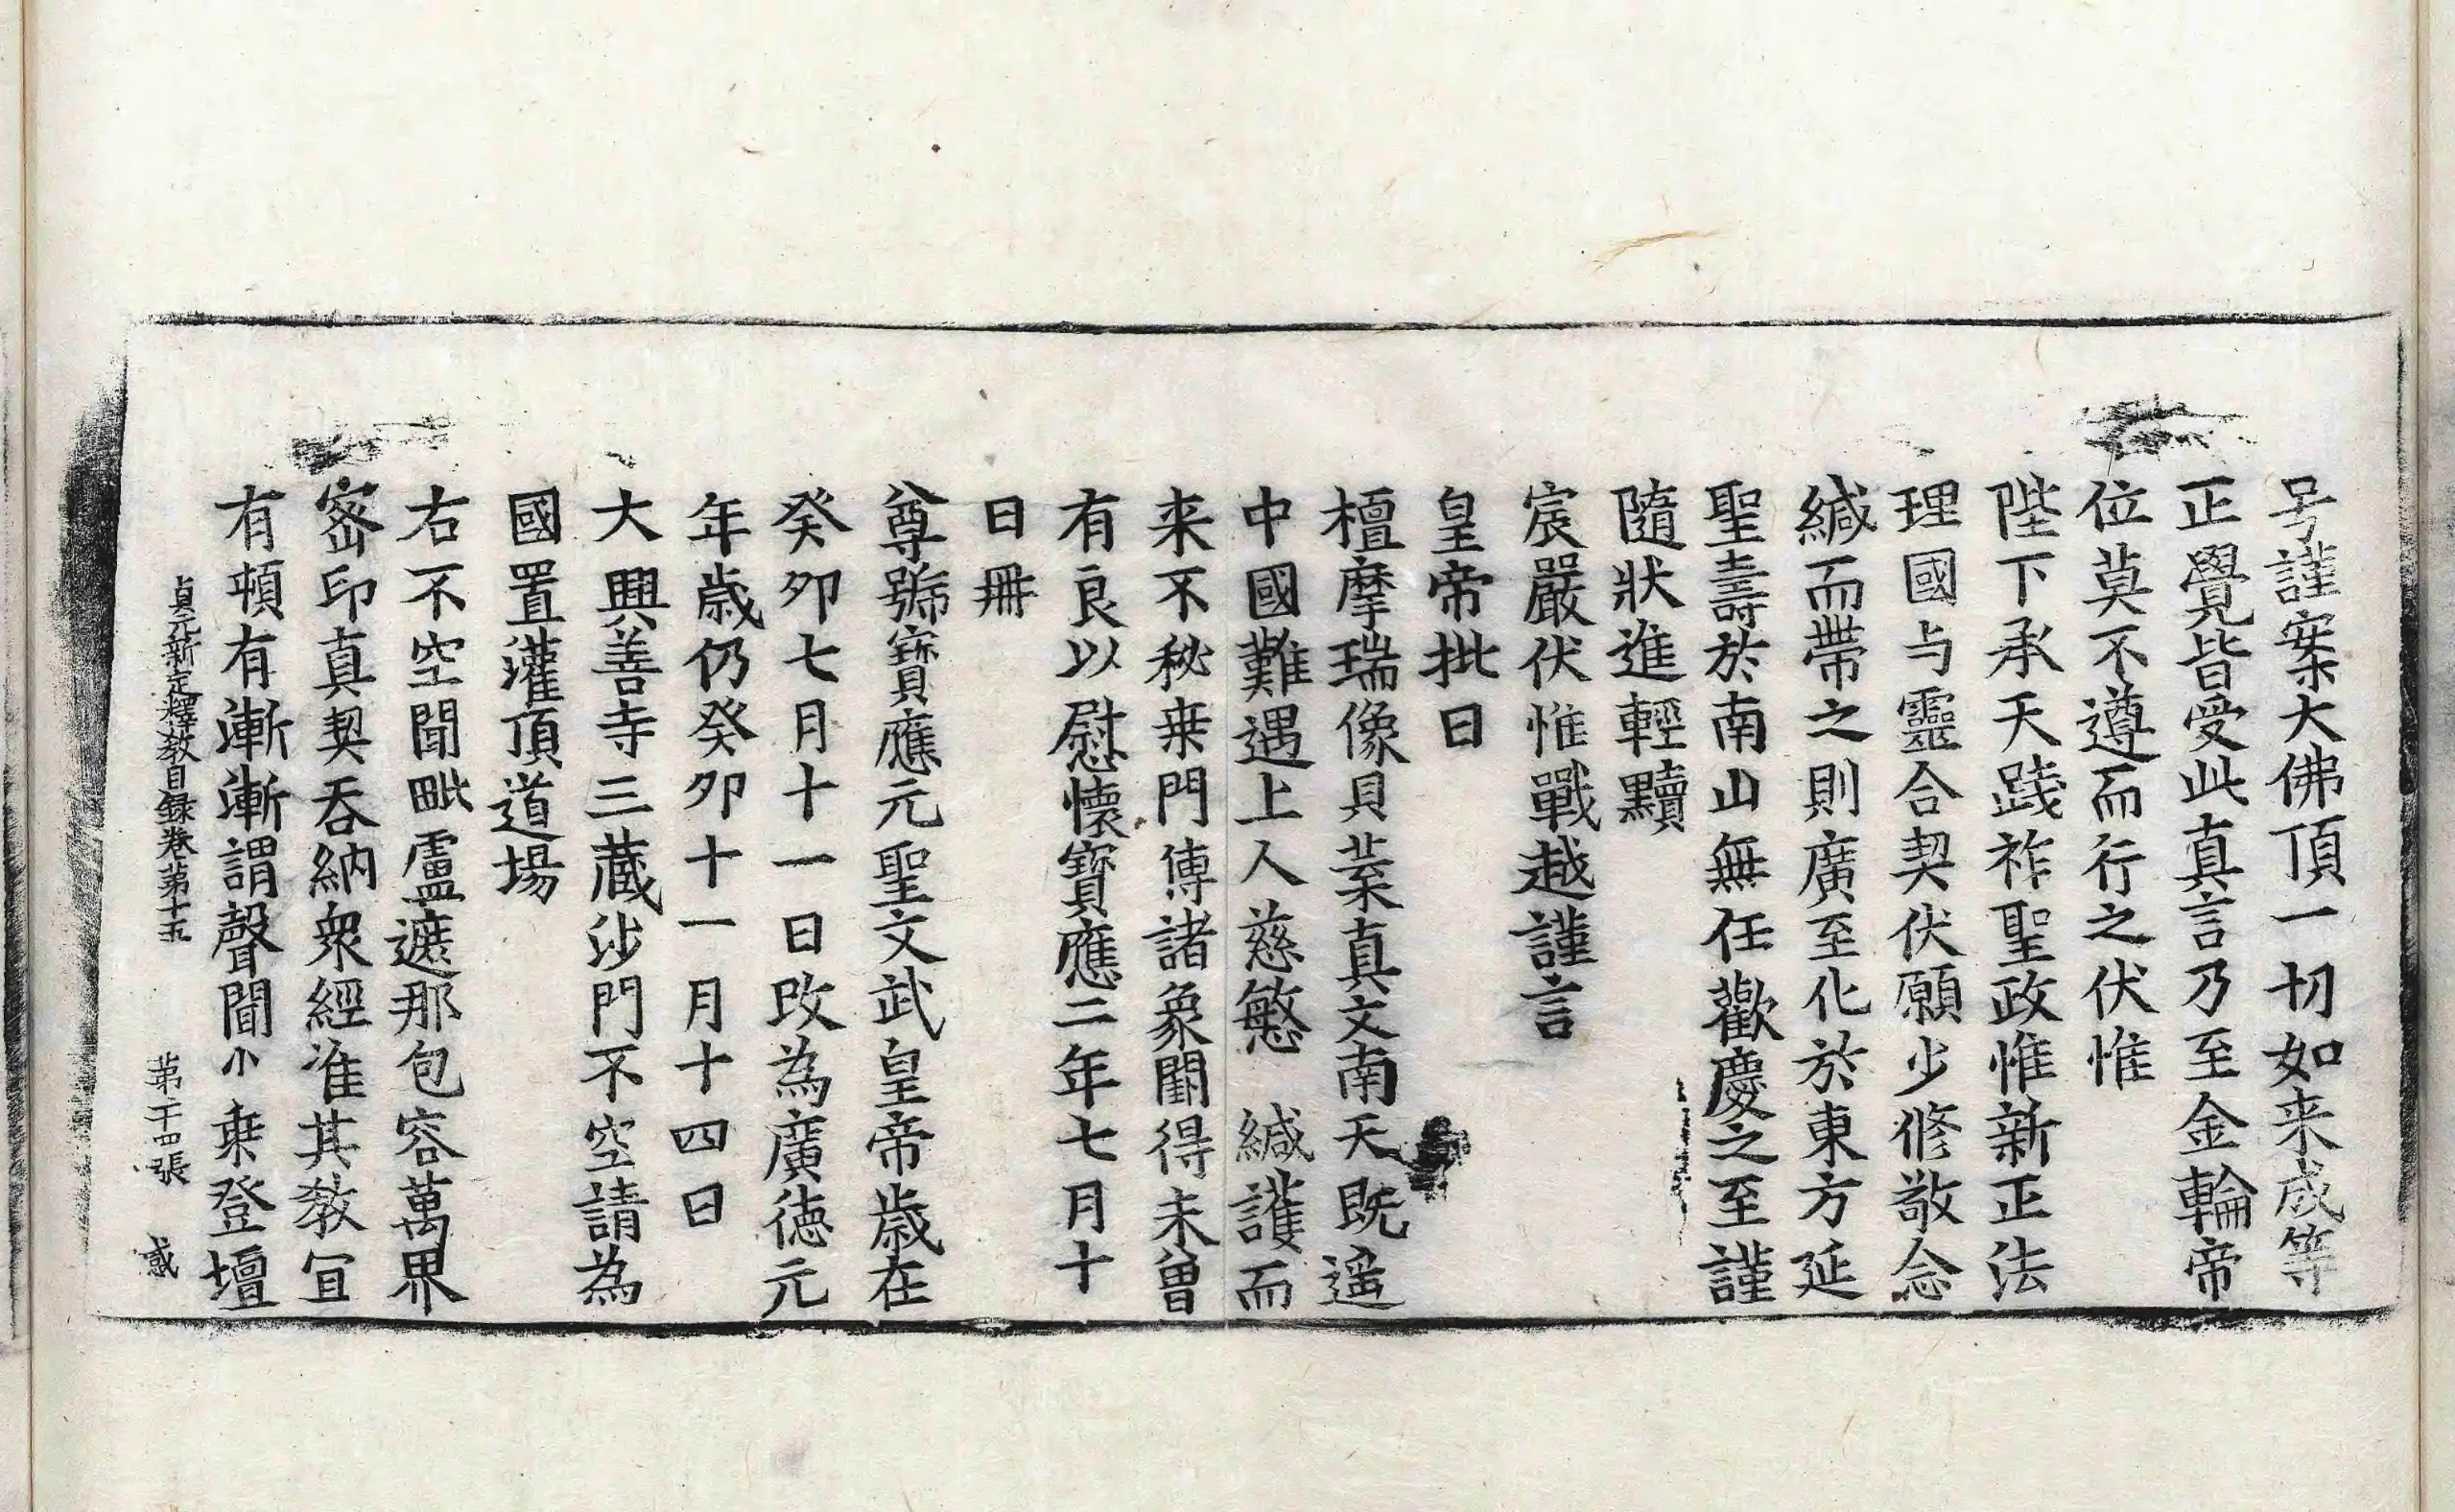 号謹案大佛頂一切如来成等
正覺皆受此真言乃至金輪帝
位莫不遵而行之伏惟
陛下承天踐祚聖政惟新正法
理國与靈合契伏願少修敬念
緘而帶之則廣至化於東方延
聖壽於南山無任歡慶之至謹
隨狀進輕黷
宸嚴伏惟戰越謹言
皇帝批曰
檀摩瑞像貝葉真文南天既遥
中國難遇上人慈慜緘護而
来不秘乗門傳諸象闕得未曽
有良以慰懷寶應二年七月十
日冊
尊號寶應元聖文武皇帝歳在
癸夘七月十一日改為廣徳元
年歳仍癸夘十一月十四日
大興善寺三藏沙門不空請為
國置灌頂道場
右不空聞毗盧遮那包容萬界
密印真契吞納衆經准其教冝
有頓有漸漸謂聲聞小乗登壇
貞元新定釋教目録卷第十五 第二十四張